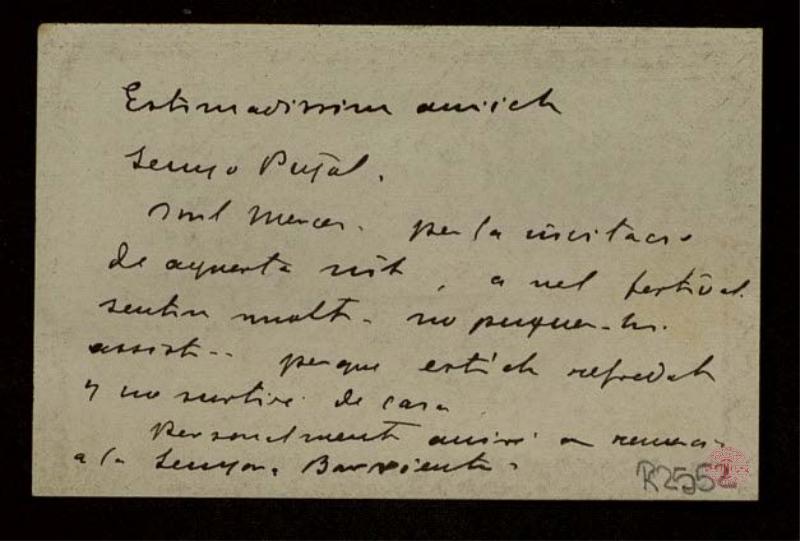 Estimadissim amich
Senyo Pujal.
Mil Merces. per la invitacio
de aquesta nit, a nel festival.
sentin molt. no puguer-hi.
assisti.. perque estich refredat
y no surtire de casa
Personalment aniré a
a la Senyora Barrientos
R2552